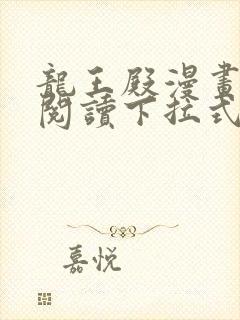 龍王殿漫畫
閱讀下拉式
嘉悅